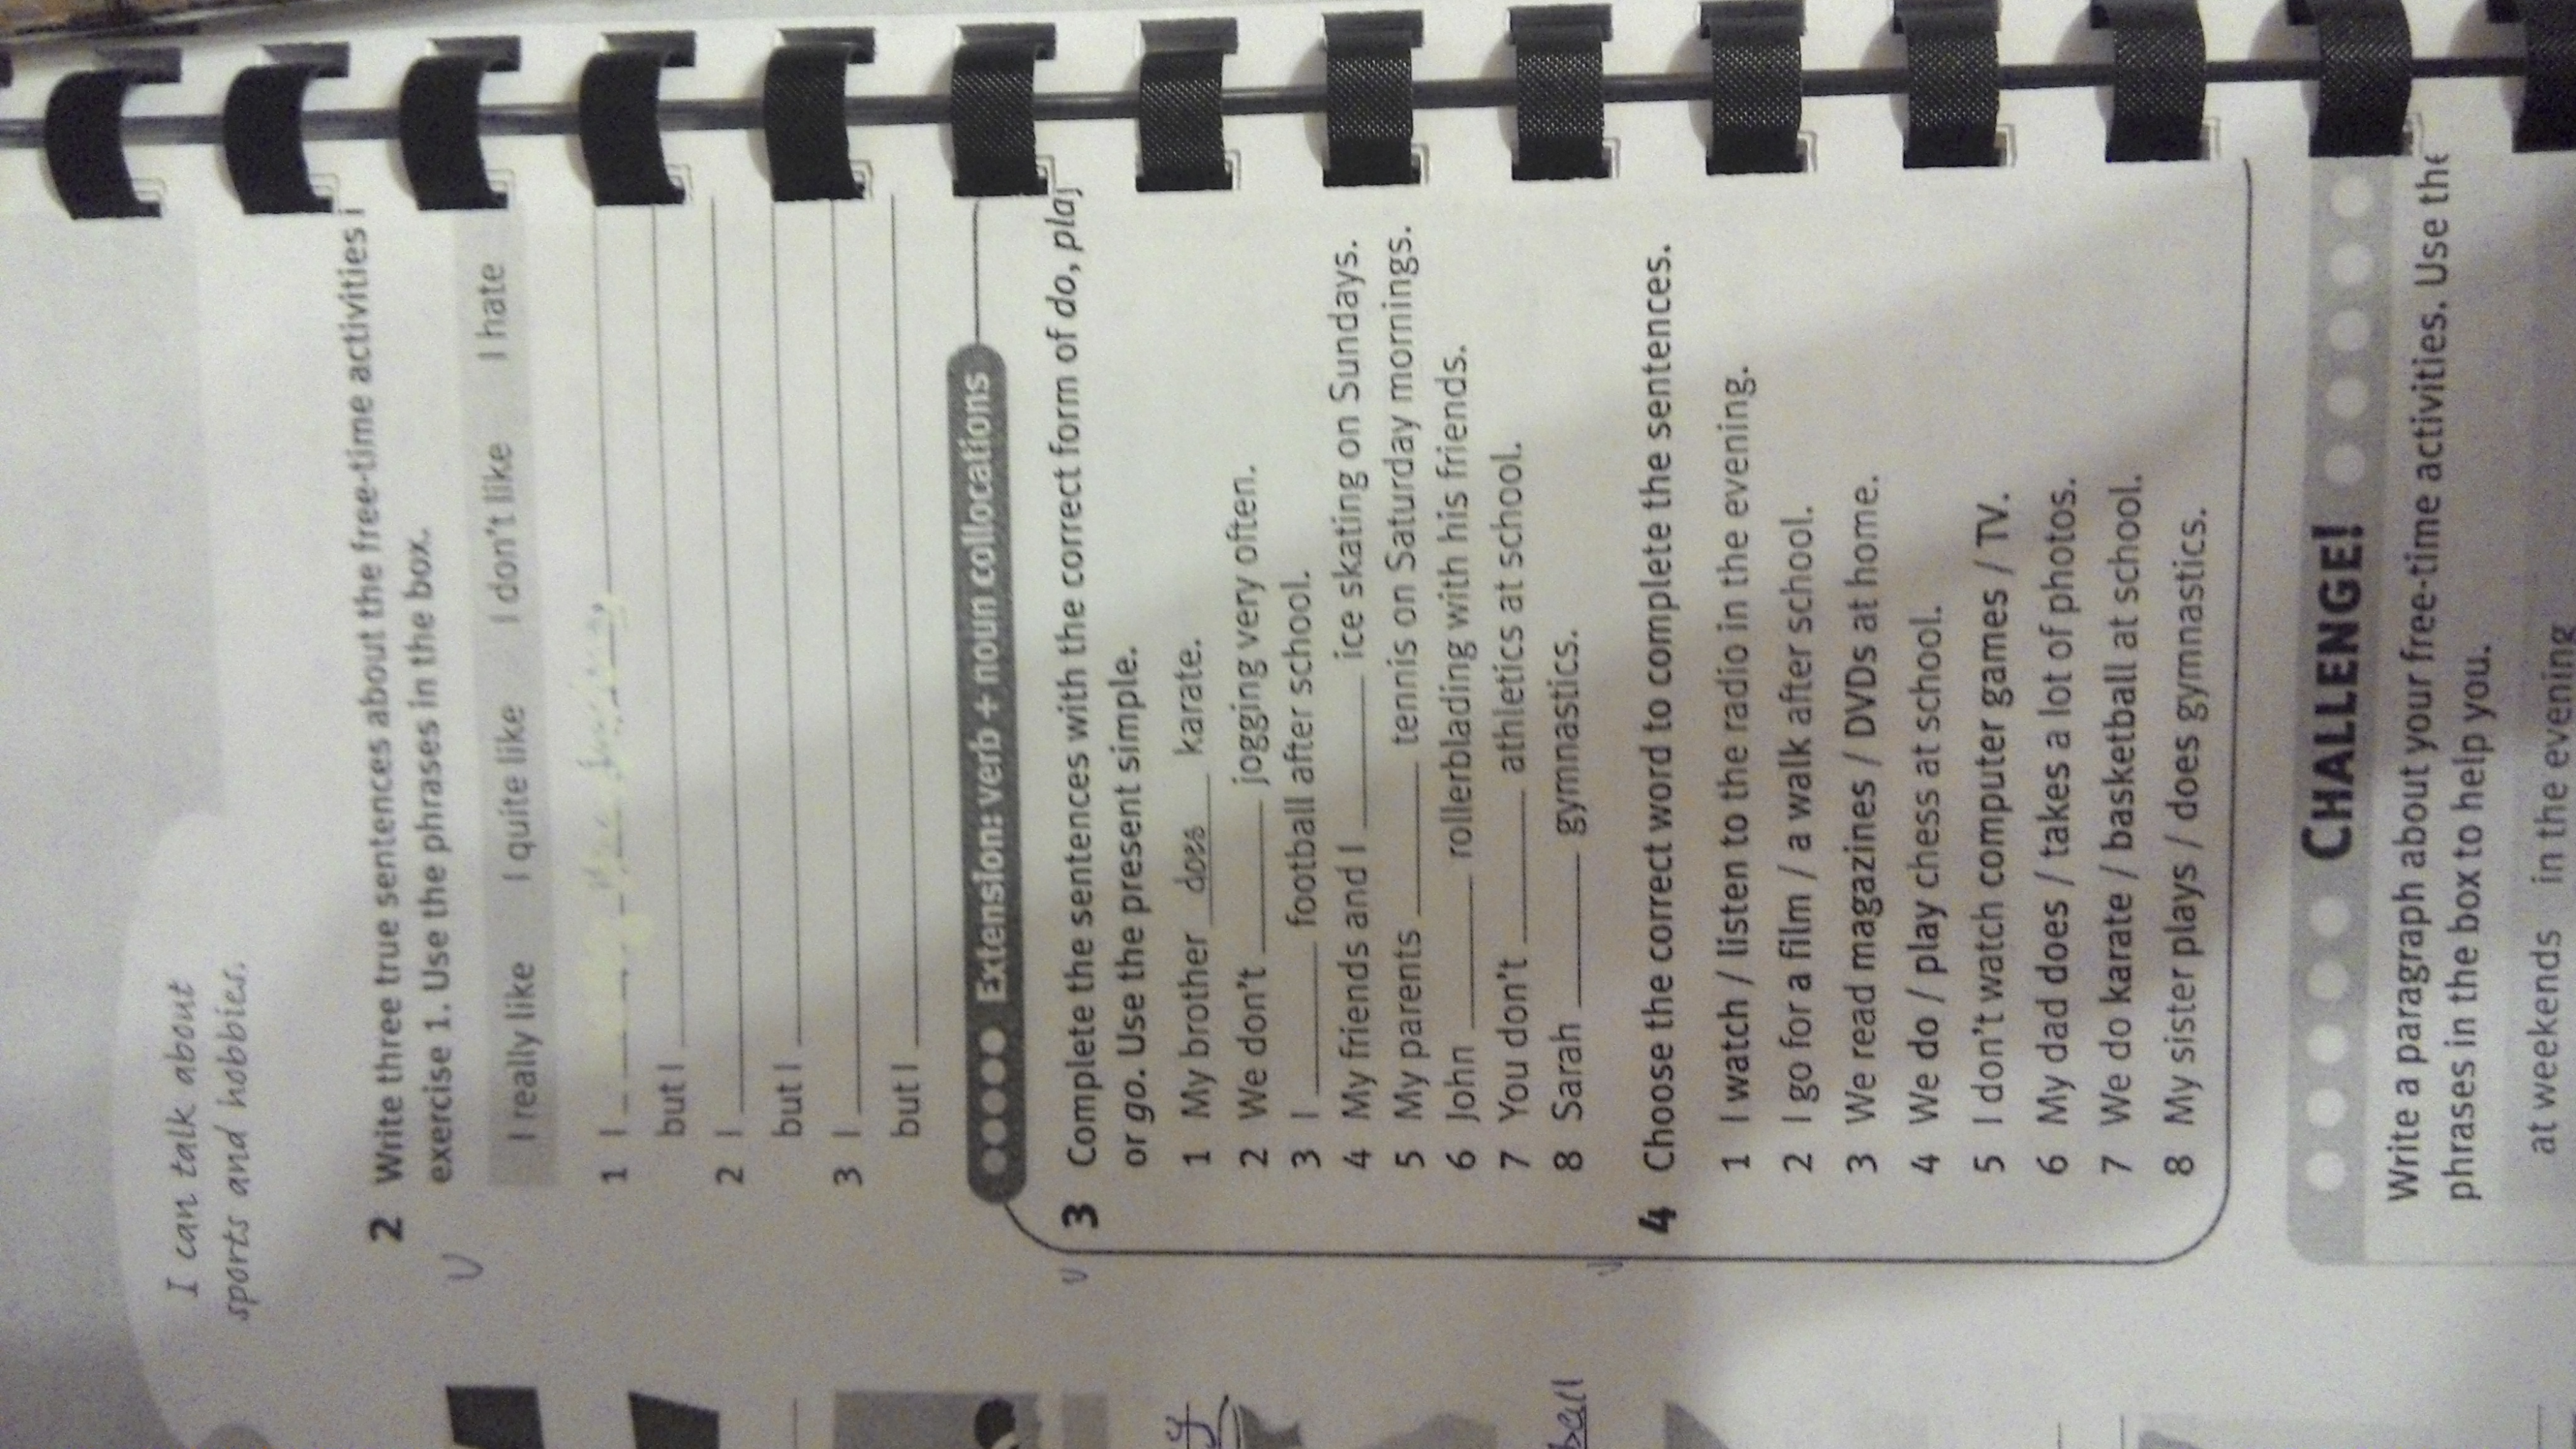 I can talk about
sports and hobbies.
2 Write three true sentences about the free-time activities i
exercise 1. Use the phrases in the box.
I really like I quite like I don't like I hate
1 I
but I
2 I
but I
3 I
but I
Extension: verb + noun collocations
3 Complete the sentences with the correct form of do, play
or go. Use the present simple.
1 My brother does karate.
2 We don't ______ jogging very often.
3 I ______ football after school.
4 My friends and I ______ ice skating on Sundays.
5 My parents ______ tennis on Saturday mornings.
6 John ______ rollerblading with his friends.
7 You don't ______ athletics at school.
8 Sarah ______ gymnastics.
4 Choose the correct word to complete the sentences.
1 I watch / listen to the radio in the evening.
2 I go for a film / a walk after school.
3 We read magazines / DVDs at home.
4 We do / play chess at school.
5 I don't watch computer games / TV.
6 My dad does / takes a lot of photos.
7 We do karate / basketball at school.
8 My sister plays / does gymnastics.
CHALLENGE!
Write a paragraph about your free-time activities. Use the
phrases in the box to help you.
at weekends in the evening
ball